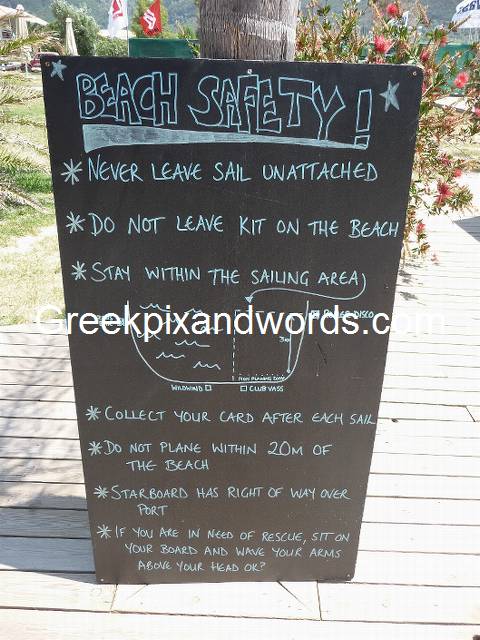 BEACH SAFETY!
* NEVER LEAVE SAIL UNATTACHED
* DO NOT LEAVE KIT ON THE BEACH
* STAY WITHIN THE SAILING AREA
DISCO
Greekpixandwords.com
NON PLANING ZONE
WILDWIND CLUB VASS
* COLLECT YOUR CARD AFTER EACH SAIL
* DO NOT PLANE WITHIN 20M OF
THE BEACH
* STARBOARD HAS RIGHT OF WAY OVER
PORT
* IF YOU ARE IN NEED OF RESCUE, SIT ON
YOUR BOARD AND WAVE YOUR ARMS
ABOVE YOUR HEAD OK?